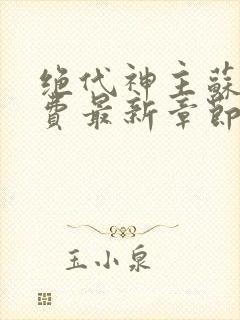 绝代神主蘇
費最新章節
玉小泉